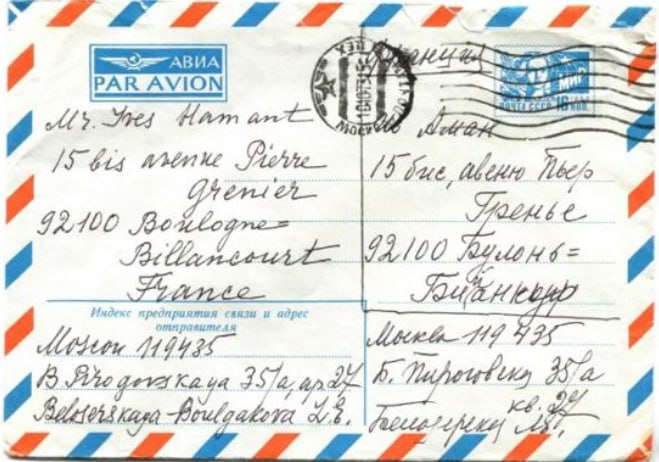 АВИА
PAR AVION
МОСКВА
МИР
ПОЧТА СССР 16 КОП.
Франция
Mr. Yves Hamant
15 bis avenue Pierre
Grenier
92100 Boulogne=
Billancourt
France
Аман
15 бис, авеню Пьер
Гренье
92100 Булонь=
Биянкур
Индекс предприятия связи и адрес
отправителя
Moscou 119435
B. Pirogovskaya 35/a, ap. 27
Beloserskaya-Boulgakova L.E.
Москва 119435
Б. Пироговская 35/а
кв. 27